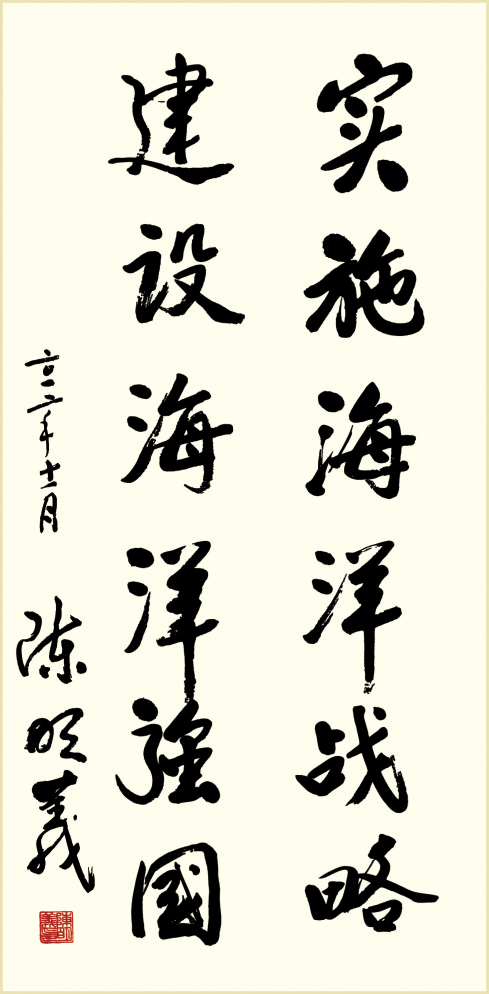 实施海洋战略
建设海洋強國
二〇一二年十一月
陈明義